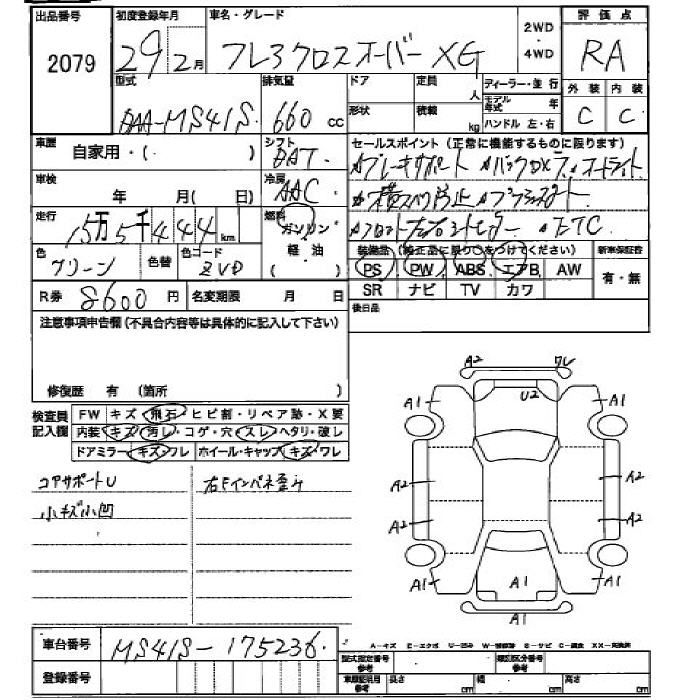 出品番号 初度登録年月 車名・グレード 評価点
2079 29 2月 フレアクロスオーバー XG 2WD・4WD RA
型式 排気量 ドア 定員 人 ディーラー・並行 外装 内装
DAA-MS41S 660 cc 形状 積載 kg モデル年式 年 ハンドル 左・右 C C
車歴 自家用・( ) シフト DAT セールスポイント(正常に機能するものに限ります)
車検 年 月( 日) 冷房 AAC
走行 15万5千444 km 燃料 ガソリン 軽油
色 グリーン 色替 色コード ZVD ( ) ETC
装備品(純正品に限り○をつけてください) 新車保証書
PS PW ABS エアB AW 有・無
SR ナビ TV カワ
R券 8600 円 名変期限 月 日 後日品
注意事項申告欄(不具合内容等は具体的に記入して下さい)
修復歴 有(箇所 )
検査員記入欄 FW キズ・飛石・ヒビ割・リペア跡・X要
内装 キズ・汚レ・コゲ・穴・スレ・ヘタリ・破レ
ドアミラー キズ・ワレ ホイール・キャップ キズ・ワレ
コアサポートU 右Fインパネ歪み
小キズ小凹
A2 ワレ
A1 U2 A1
A2 A2
A2 A2
A1 A1 A1
A1
車台番号 MS41S-175236
登録番号
A-キズ E-エクボ U-凹み S-サビ
型式指定番号 類別区分番号
長さ cm 幅 cm 高さ cm